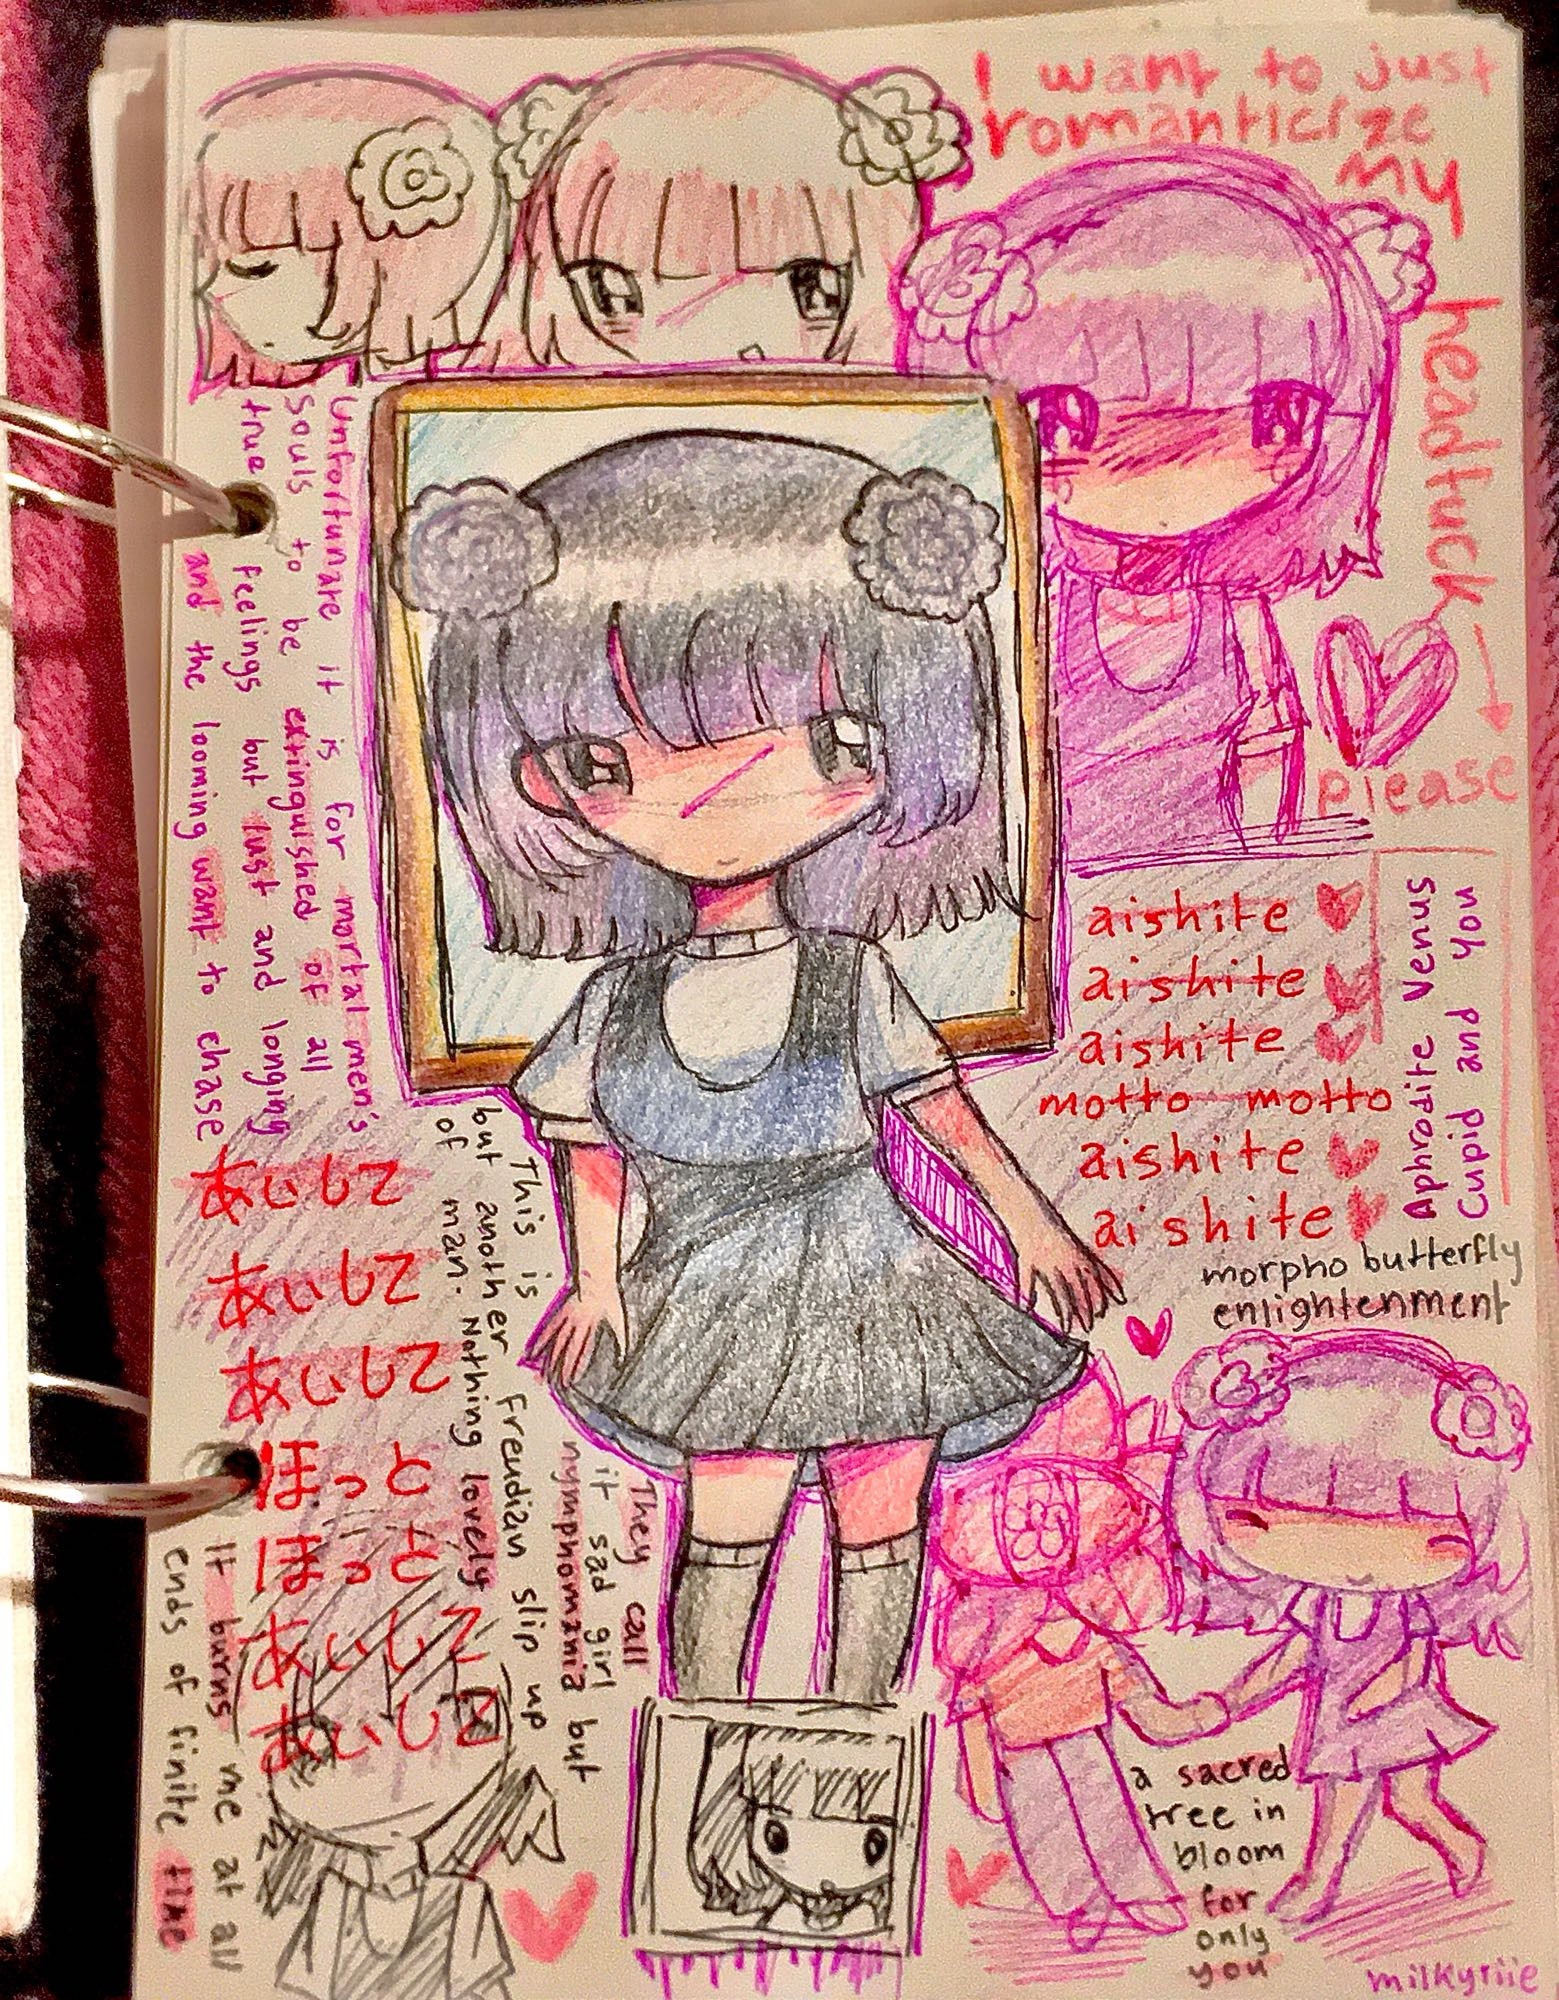 I want to just
romanticize
my
headfuck →
please
Unfortunate it is for mortal men's
Souls to be extinguished of all
true feelings but lust and longing
and the looming want to chase
aishite ♥
aishite ♥
aishite ♥
motto motto
aishite ♥
aishite ♥
Aphrodite Venus
Cupid and you
morpho butterfly
enlightenment
あいして
あいして
あいして
ほっと
ほっと
あいして
あいして
They call
it sad girl
nymphomania but
This is
but another freudian slip up
of man. Nothing lovely
It burns me at all
ends of finite time
a sacred
tree in
bloom
for
only
you
milkyriie